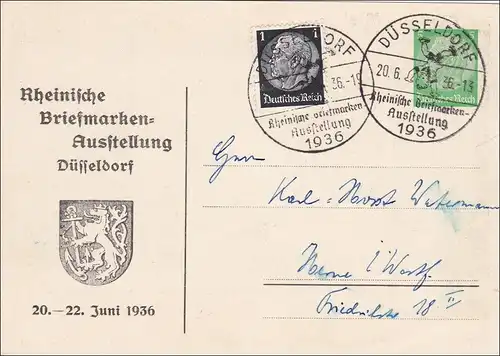 Rheinische
Briefmarken=
Ausstellung
Düsseldorf
20.—22. Juni 1936
1 1
Deutsches Reich
DORF
36.-1
Rheinische Briefmarken
Ausstellung
1936
DÜSSELDORF
20.6. 36.-13
Deutsches Reich
Rheinische Briefmarken-
Ausstellung
1936
Herrn
Karl-Horst Watermann
Herne i/Westf.
Friedrichstr 18 II